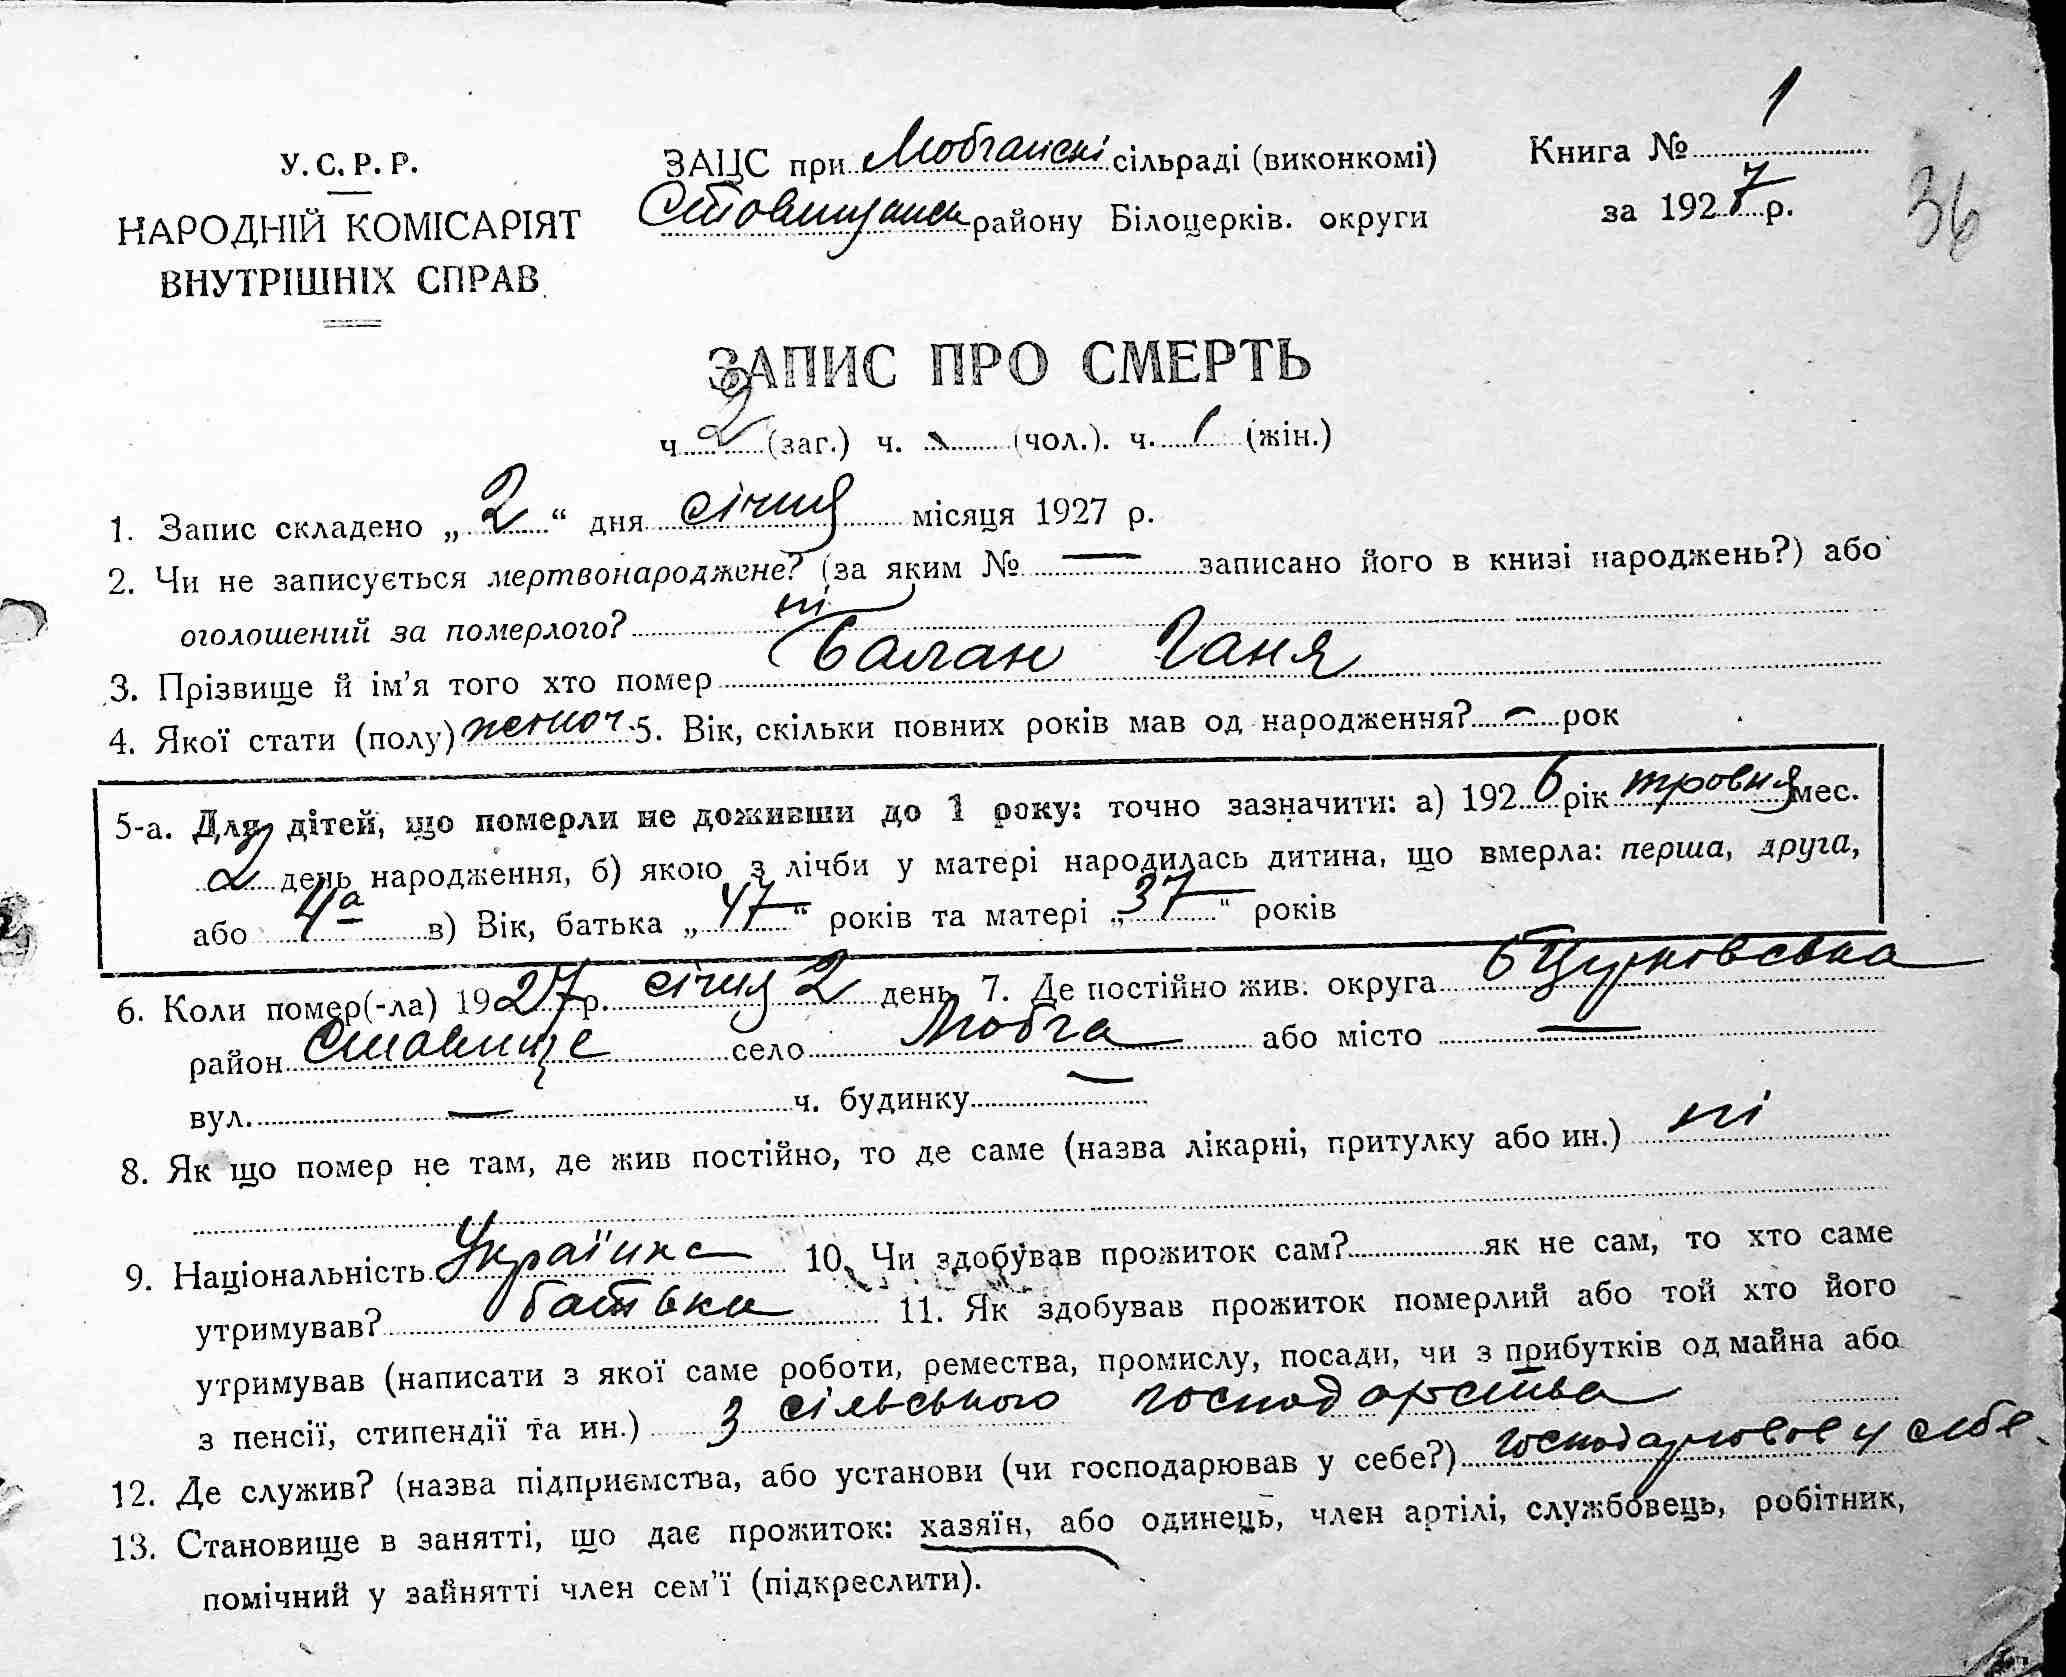 У.С.Р.Р.
НАРОДНІЙ КОМІСАРІЯТ
ВНУТРІШНІХ СПРАВ
ЗАЦС при сільраді (виконкомі)
району Білоцерків. округи
Книга № 1
за 1927 р.
36
ЗАПИС ПРО СМЕРТЬ
ч 2 (заг.) ч. (чол.). ч. 1 (жін.)
1. Запис складено „ 2 “ дня січня місяця 1927 р.
2. Чи не записується мертвонароджене? (за яким № — записано його в книзі народжень?) або
оголошений за померлого? ні
3. Прізвище й ім’я того хто помер Балан Ганя
4. Якої стати (полу) жіноч. 5. Вік, скільки повних років мав од народження? — рок
5-а. Для дітей, що померли не доживши до 1 року: точно зазначити: а) 1926 рік мес.
2 день народження, б) якою з лічби у матері народилась дитина, що вмерла: перша, друга,
або 4а в) Вік, батька „ 47 “ років та матері „ 37 “ років
6. Коли помер(-ла) 1927 р. січня 2 день 7. Де постійно жив: округа
район Ставище село або місто —
вул. — ч. будинку —
8. Як що помер не там, де жив постійно, то де саме (назва лікарні, притулку або ин.) ні
9. Національність 10. Чи здобував прожиток сам? як не сам, то хто саме
утримував? батьки 11. Як здобував прожиток померлий або той хто його
утримував (написати з якої саме роботи, ремества, промислу, посади, чи з прибутків од майна або
з пенсії, стипендії та ин.) З сільського господарства
12. Де служив? (назва підприємства, або установи (чи господарював у себе?) господарював у себе.
13. Становище в занятті, що дає прожиток: хазяїн, або одинець, член артілі, службовець, робітник,
помічний у зайнятті член сем’ї (підкреслити).